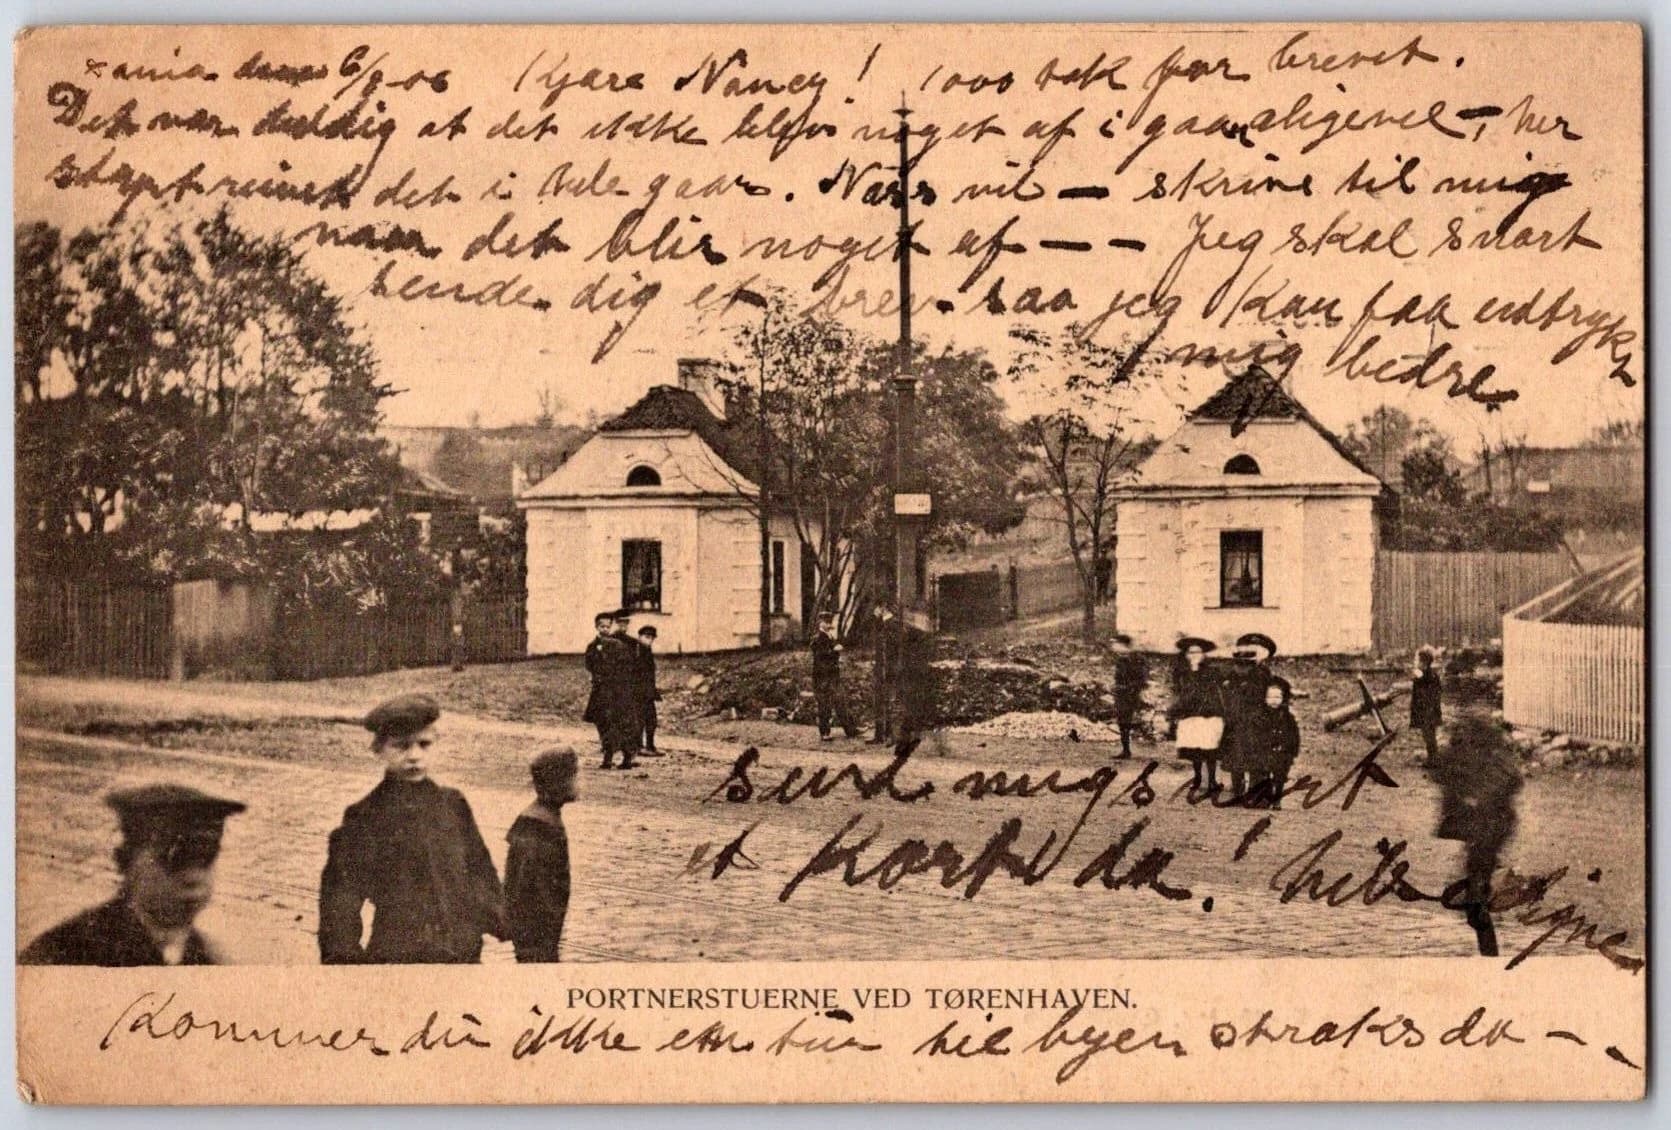 Xania den 6/9-06 Kjære Nancy! 1000 tak for brevet.
Det var at det ikke blev noget af i gaar aligevel -, her
det i hele gaar. Naar vil — skrive til mig
naar det blir noget af — — Jeg skal snart
sende dig et brev saa jeg kan faa udtrykt
mig bedre
send mig snart
et kort da! hils
PORTNERSTUERNE VED TØRENHAVEN.
Kommer du ikke en tur til byen straks da —